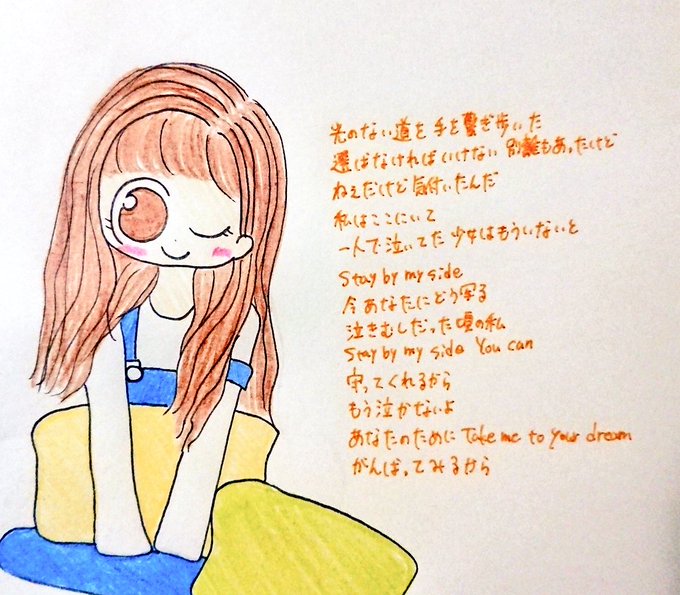 光のない道を 手を繋ぎ歩いた
選ばなければいけない 別離もあったけど
ねえだけど 気付いたんだ
私はここにいて
一人で泣いてた 少女はもういないと
Stay by my side
今 あなたにどう写る
泣きむしだった頃の私
Stay by my side You can
守ってくれるから
もう泣かないよ
あなたのために Take me to your dream
がんばってみるから